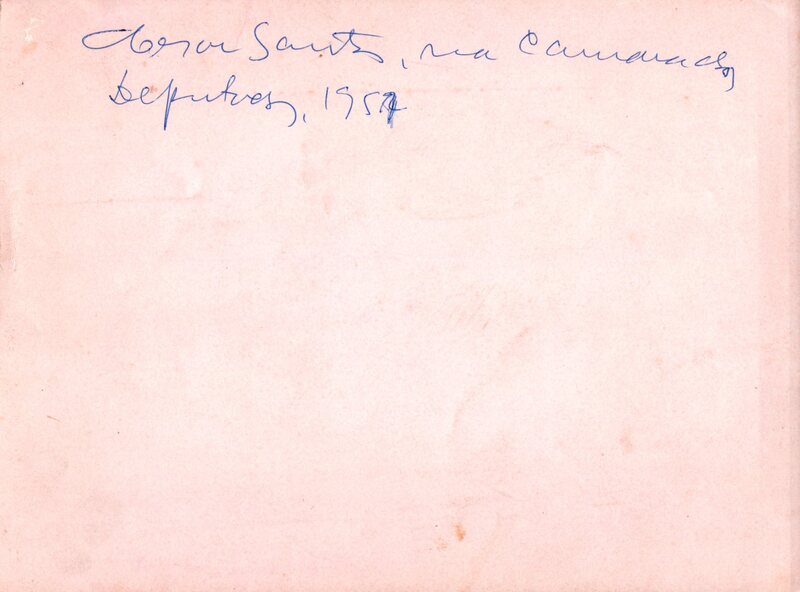 Cesar Santos, na Camara dos
Deputados, 1957